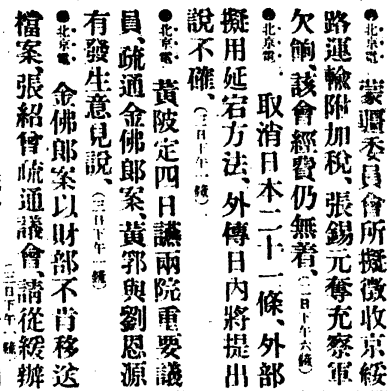 ●北京電　蒙疆委員會所擬徵收京綏
路運輸附加稅、張錫元奪充察軍
欠餉、該會經費仍無着、（二日下午六鐘）
●北京電　取消日本二十一條、外部
擬用延宕方法、外傳日內將提出
說不確、（三日下午一鐘）
●北京電　黃陂定四日讌兩院重要議
員、疏通金佛郎案、黃郛與劉恩源
有發生意見說、（三日下午一鐘）
●北京電　金佛郎案以財部不肯移送
檔案、張紹曾疏通議會、請從緩辦
（三日下午一鐘）